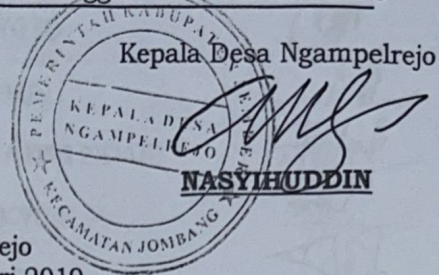 Kepala Desa Ngampelrejo
PEMERINTAH KABUPATEN JEMBER
KEPALA DESA
NGAMPELREJO
KECAMATAN JOMBANG
NASYIHUDDIN
ejo